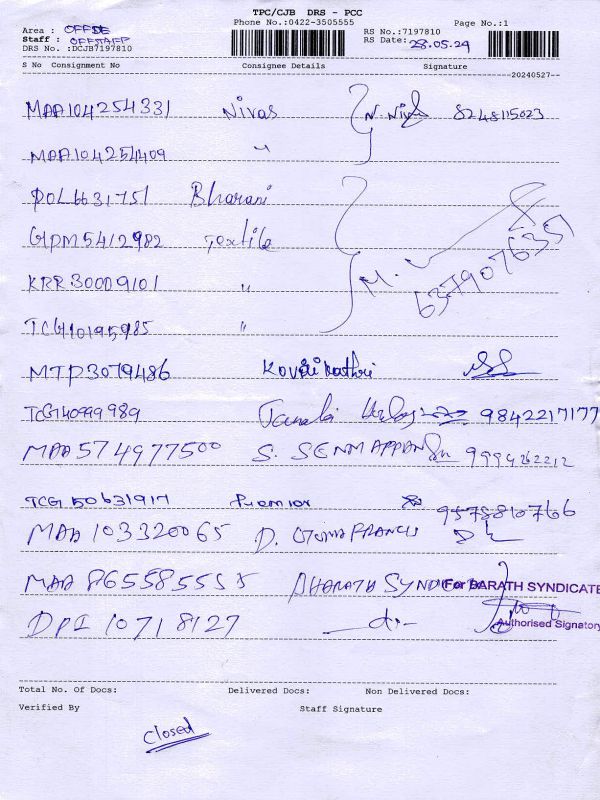 TPC/CJB DRS - PCC
Phone No.:0422-3505555 Page No.:1
Area : OFFSE
Staff : OFFSTAFF
DRS No. :DCJB7197810
RS No.:7197810
RS Date: 28.05.24
S No Consignment No Consignee Details Signature
20240527--
MAA104254331 Nivas N. Nivas 8248115023
MAA104254409 "
POL6631751 Bharani
GPM5412982 Textile
KRR30009101 " M. 637907635
TCG10195985 "
MTP3079486
TCG40999989 9842217177
MAA574977500 S. SENNAPPAN
TCG50631917 Premior 9578810766
MAA103320065 D.
MAA865585558 BHARATH SYNDICATE For BARATH SYNDICATE
DPI10718127 -do- Authorised Signatory
Total No. Of Docs: Delivered Docs: Non Delivered Docs:
Verified By Staff Signature
closed